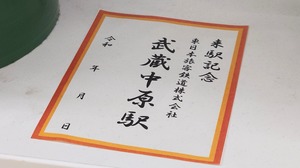 来駅記念
東日本旅客鉄道株式会社
武蔵中原駅
令和 年 月 日